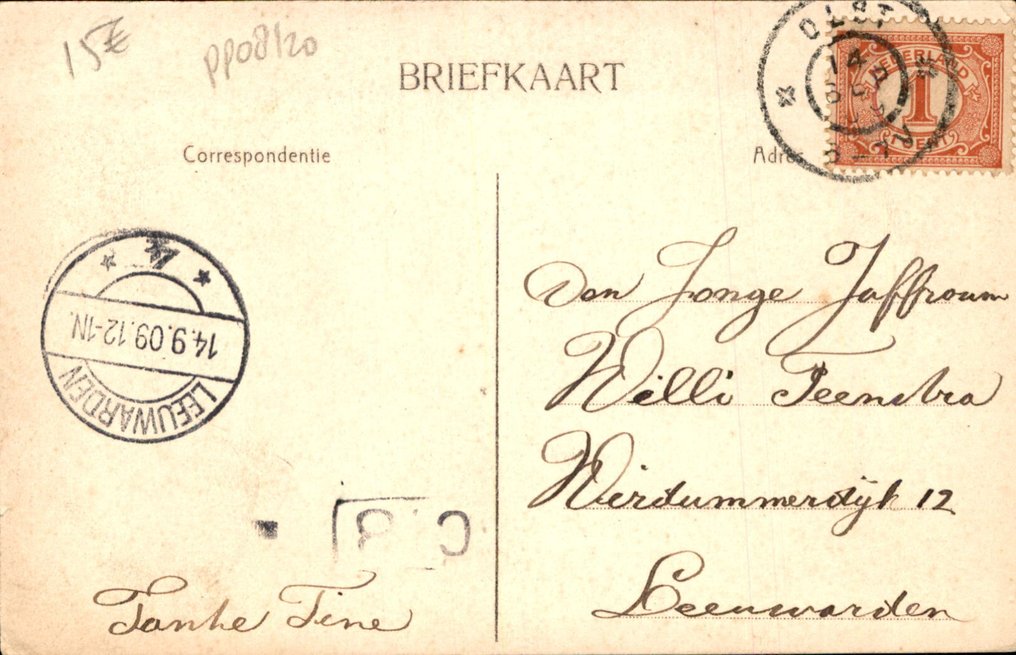 15€
PP08/20
BRIEFKAART
Correspondentie
OLST
14 SEP
NEDERLAND
1
CENT
14.9.09.12-1N.
LEEUWARDEN
Den Jonge Jaffrouw
Willi Feenstra
Wirdummerdijk 12
Leeuwarden
Tante Tine